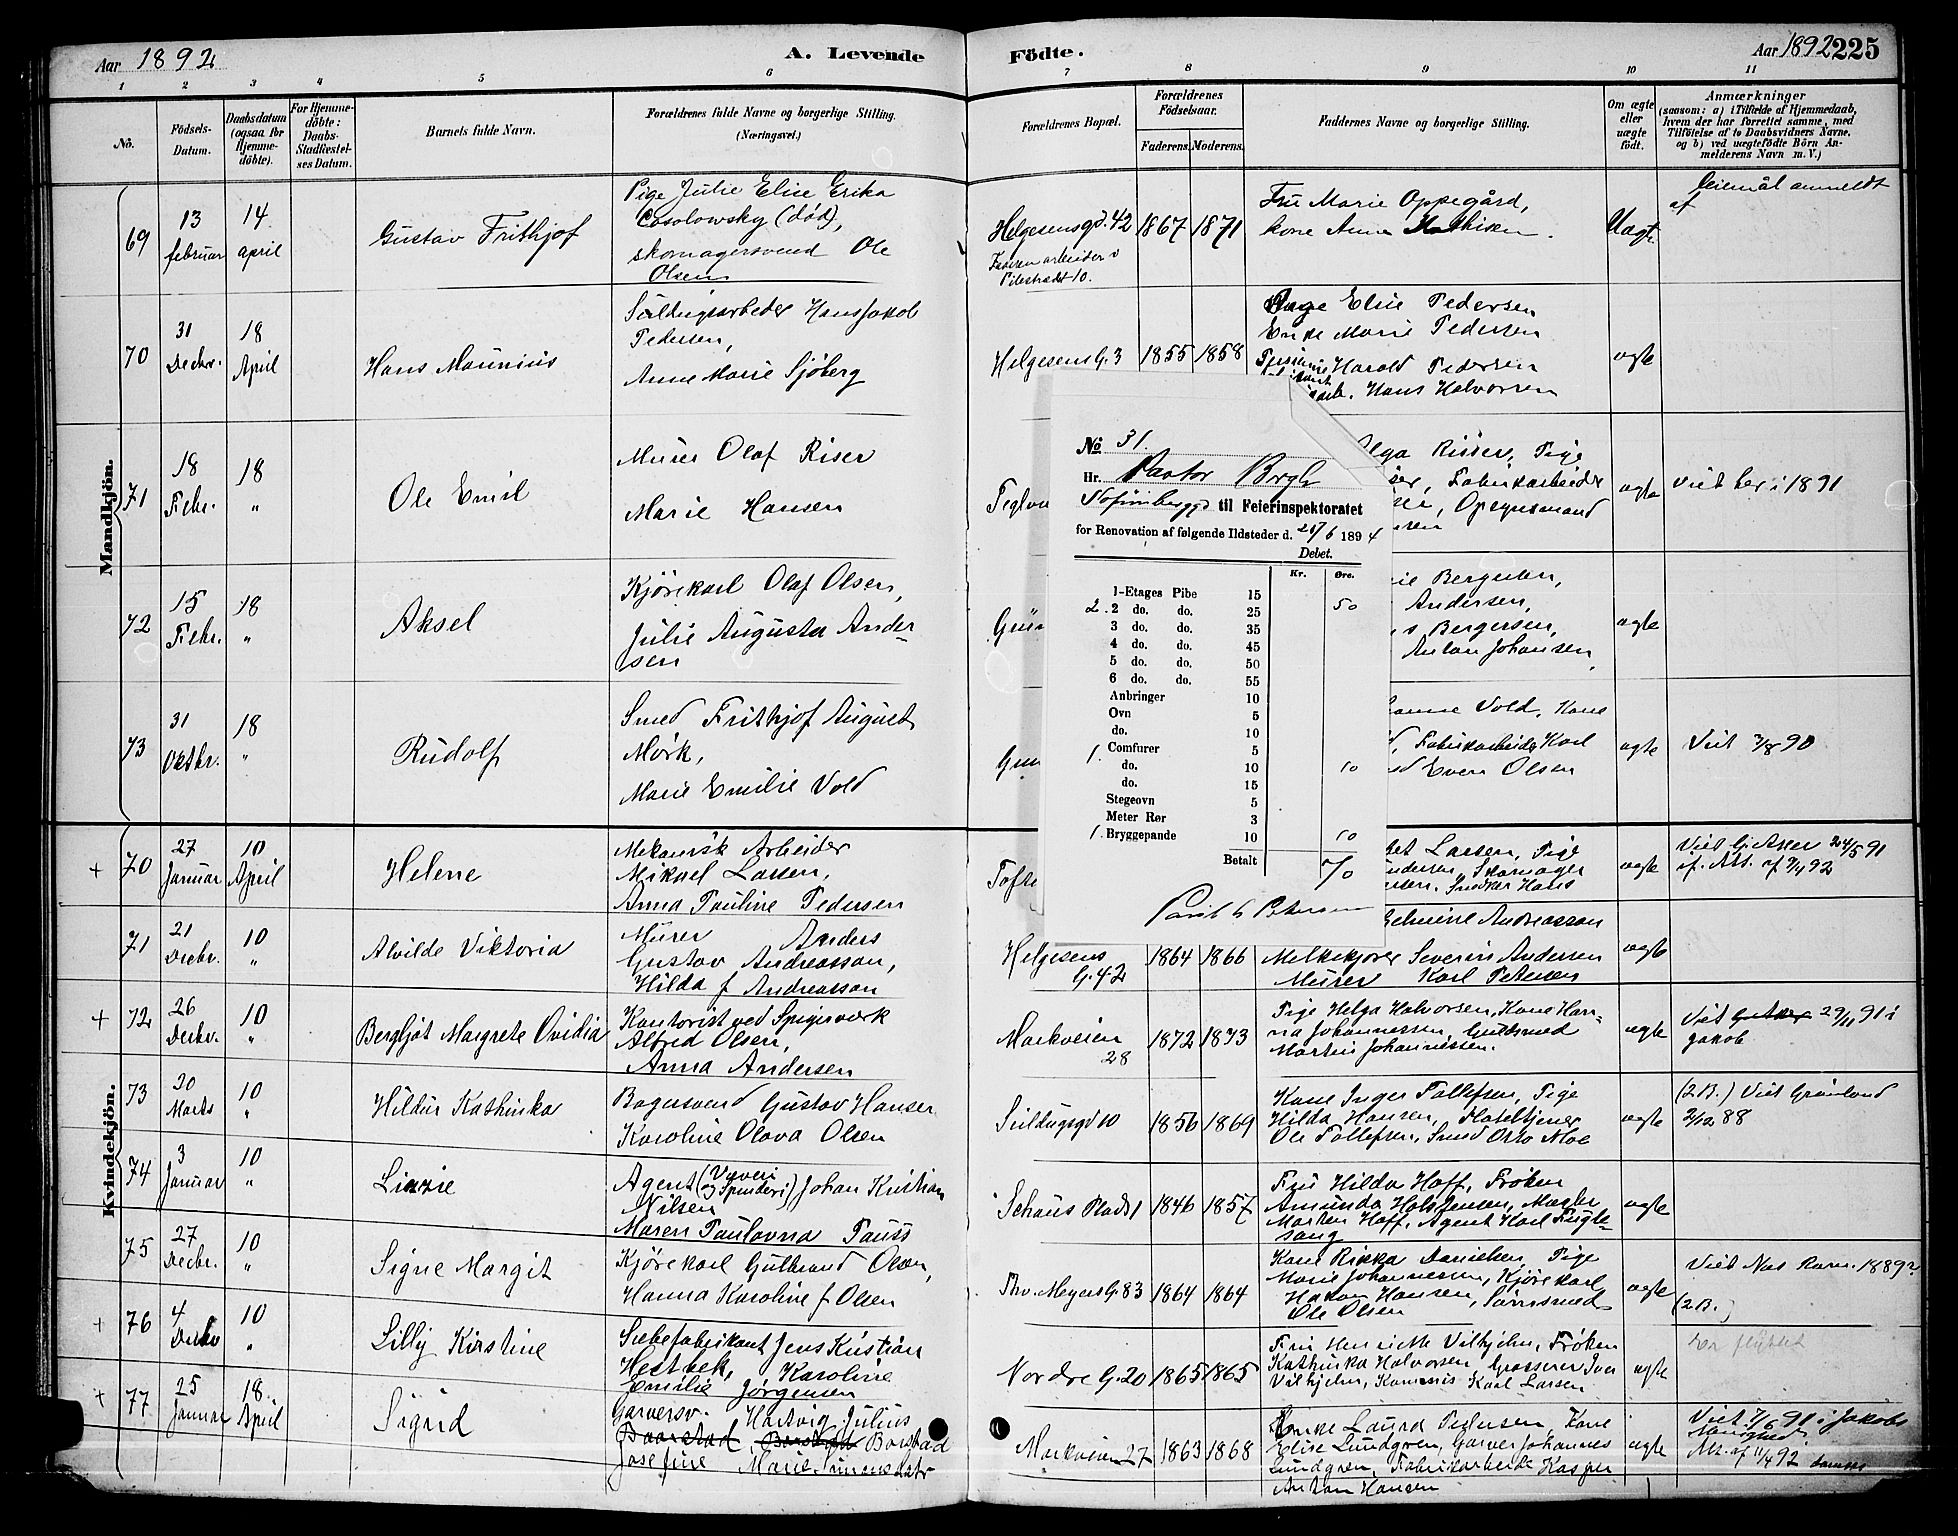 Aar 1892
A. Levende
Födte.
Aar 1892 225
1 2 3 4 5 6 7 8 9 10 11
Nô.
Födsels-Datum.
Daabsdatum (ogsaa for Hjemme-döbte).
For Hjemme-döbte: Daabs-Stadfæstel-ses Datum.
Barnets fulde Navn.
Forældrenes fulde Navne og borgerlige Stilling. (Næringsvei.)
Forældrenes Bopæl.
Forældrenes Födselsaar.
Faderens. Moderens.
Faddernes Navne og borgerlige Stilling.
Om ægte eller uægte födt.
Anmærkninger
(saasom: a) i Tilfælde af Hjemmedaab,
hvem der har forrettet samme, med
Tilföielse af to Daabsvidners Navne,
og b) ved uægtefödte Börn An-
melderens Navn m. V.)
Mandkjön.
69
13 februar
14 april
Gustav Frithjof
Pige Julie Elise Erika
Cosolowsky (död),
skomagersvend Ole
Olsen
Helgesensgd. 42
Faderen arbeider i
Pilestrædet 10.
1867 1871
Fru Marie Oppegård,
kone Anna Mathisen.
Uægte
Leiemål anmeldt
af
70
31 Decbr.
18 April
Hans Maurnius
Seildugsarbeder Hans Jakob
Pedersen,
Anne Marie Sjöberg
Helgesens G. 3
1855 1858
Pige Elise Pedersen
Enke Marie Pedersen
Harald Pedersen
Hans Halvorsen
ægte
71
18 Febr.
18 "
Ole Emil
Murer Olaf Riser
Marie Hansen
Teglv
lga Risser, Pige
ser, Fabrikarbeider
Opsynsmand
nsen
ægte
Viet her i 1891
72
15 Febr.
18 "
Aksel
Kjörekarl Olaf Olsen,
Julie Augusta Ander-
sen
Grün
rie Bergersen,
Andersen,
s Bergersen,
Anton Johansen,
ægte
73
31 Oktbr.
18 "
Rudolf
Smed Frithjof August
Mörk,
Marie Emilie Vold
Grün
anna Vold, Kone
Fabrikarbeider Karl
Even Olsen
ægte
Viet 3/8 90
No 31.
Hr. Pastor
til Feierinspektoratet
for Renovation af følgende Ildsteder d. 26/6 1894
Debet.
Kr. Øre.
1-Etages Pibe 15
2. 2 do. do. 25 50
3 do. do. 35
4 do. do. 45
5 do. do. 50
6 do. do. 55
Anbringer 10
Ovn 5
do. 10
1. Comfurer 5
do. 10 10
do. 15
Stegeovn 5
Meter Rør 3
1. Bryggepande 10 10
Betalt 70
Petersen
Kvindekjön.
+ 70
27 Januar
10 April
Helene
Mekanisk Arbeider
Mikael Larsen,
Anna Pauline Pedersen
Tofte
et Larsen, Pige
ndersen, Skomager
nsen, Snedker Hans
ægte
Viet G. Aker 24/5 91
71
21 Decbr.
10 "
Alvilde Viktoria
Murer Anders
Gustav Andreasson,
Hilda f Andreasson
Helgesens
G. 42
1864 1866
elmine Andreasson
Melkekjörer Severin Andersen
Murer Karl Petersen
ægte
+ 72
26 Decbr.
10 "
Bergljot Margrete Ovidia
Kontorist ved Spigerværk
Alfred Olsen,
Anna Andersen
Markveien
28
1872 1873
Pige Helga Halvorsen, Kone Han-
na Johannessen, Guldsmed
Martin Johannessen.
ægte
Viet 29/11 91 i
Jakob
73
30 Marts
10 "
Hildur Kathinka
Bagersvend Gustav Hansen
Karoline Olava Olsen
Seildugsgd 10
1856 1869
Kone Inger Tollefsen, Pige
Hilda Hansen, Hoteltjener
Ole Tollefsen, Smed Otto Moe
ægte
(2 B.) Viet Grönland
2/12 88
74
3 Januar
10 "
Linzie
Agent (Væveri og Spinderi) Johan Kristian
Nilsen
Maren Paulovna Pauss
Schous Plads 1
1846 1857
Fru Hilda Hoff, Fröken
Amunda Holst Jensen, Mægler
Morten Hoff, Agent Karl Fugle-
sang
ægte
75
27 Decbr.
10 "
Signe Margit
Kjörekarl Gulbrand Olsen,
Hanna Karoline f Olsen
Thv. Meyers G. 83
1864 1864
Kone Rikka Danielsen, Pige
Marie Johannessen, Kjörekarl
Hakon Hansen,
Ole Olsen
ægte
(2 B.)
+ 76
4 Decbr
10 "
Lilly Kirstine
Sæbefabrikant Jens Kristian
Hestbek, Karoline
Emilie Jörgensen
Nordre G. 20
1865 1865
Fru Henriette Vilhjelm, Fröken
Kathinka Halvorsen, Grosserer Iver
Vilhjelm, Kommis Karl Larsen
ægte
er flyttet
+ 77
25 Januar
18 April
Sigrid
Garversv. Hartvig Julius
Borstad
Josefine Marie Simensdatr
Markveien 27
1863 1868
Enke Laura Pedersen, Kone
Elise Lundgren, Garver Johannes
Lundgren, Fabrikarbeider Kasper
Anton Hansen
ægte
Viet 7/6 91 i Jakobs
Menighed
Att. af 11/4 92